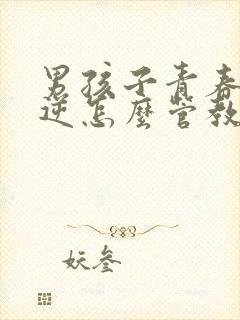 男孩子青春
逆怎麼管教
妖叁